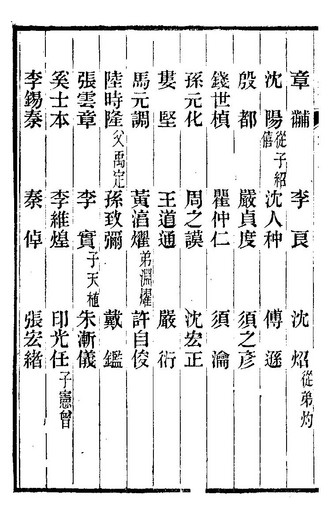 章黼 李㒰 沈炤從弟灼
沈陽從子紹僖 沈人种 傅遜
殷都 嚴貞度 須之彥
錢世楨 瞿仲仁 須瀹
孫元化 周之謨 沈宏正
婁堅 王道通 嚴衍
馬元調 黃淳耀弟淵耀 許自俊
陸時隆父禹定 孫致彌 戴鑑
張雲章 李實子天植 朱漸儀
奚士本 李維煌 印光任子憲曾
李錫泰 秦倬 張宏緒